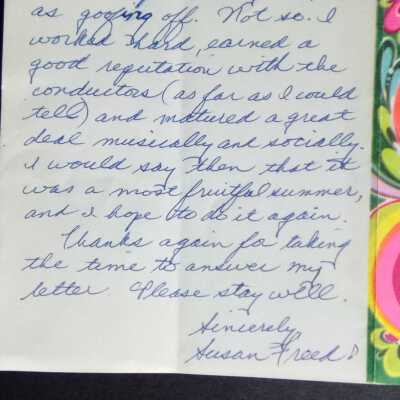 as goofing off. Not so. I
worked hard, earned a
good reputation with the
conductors (as far as I could
tell) and matured a great
deal musically and socially.
I would say then that it
was a most fruitful summer,
and I hope to do it again.
Thanks again for taking
the time to answer my
letter. Please stay well.
Sincerely,
Susan Freed